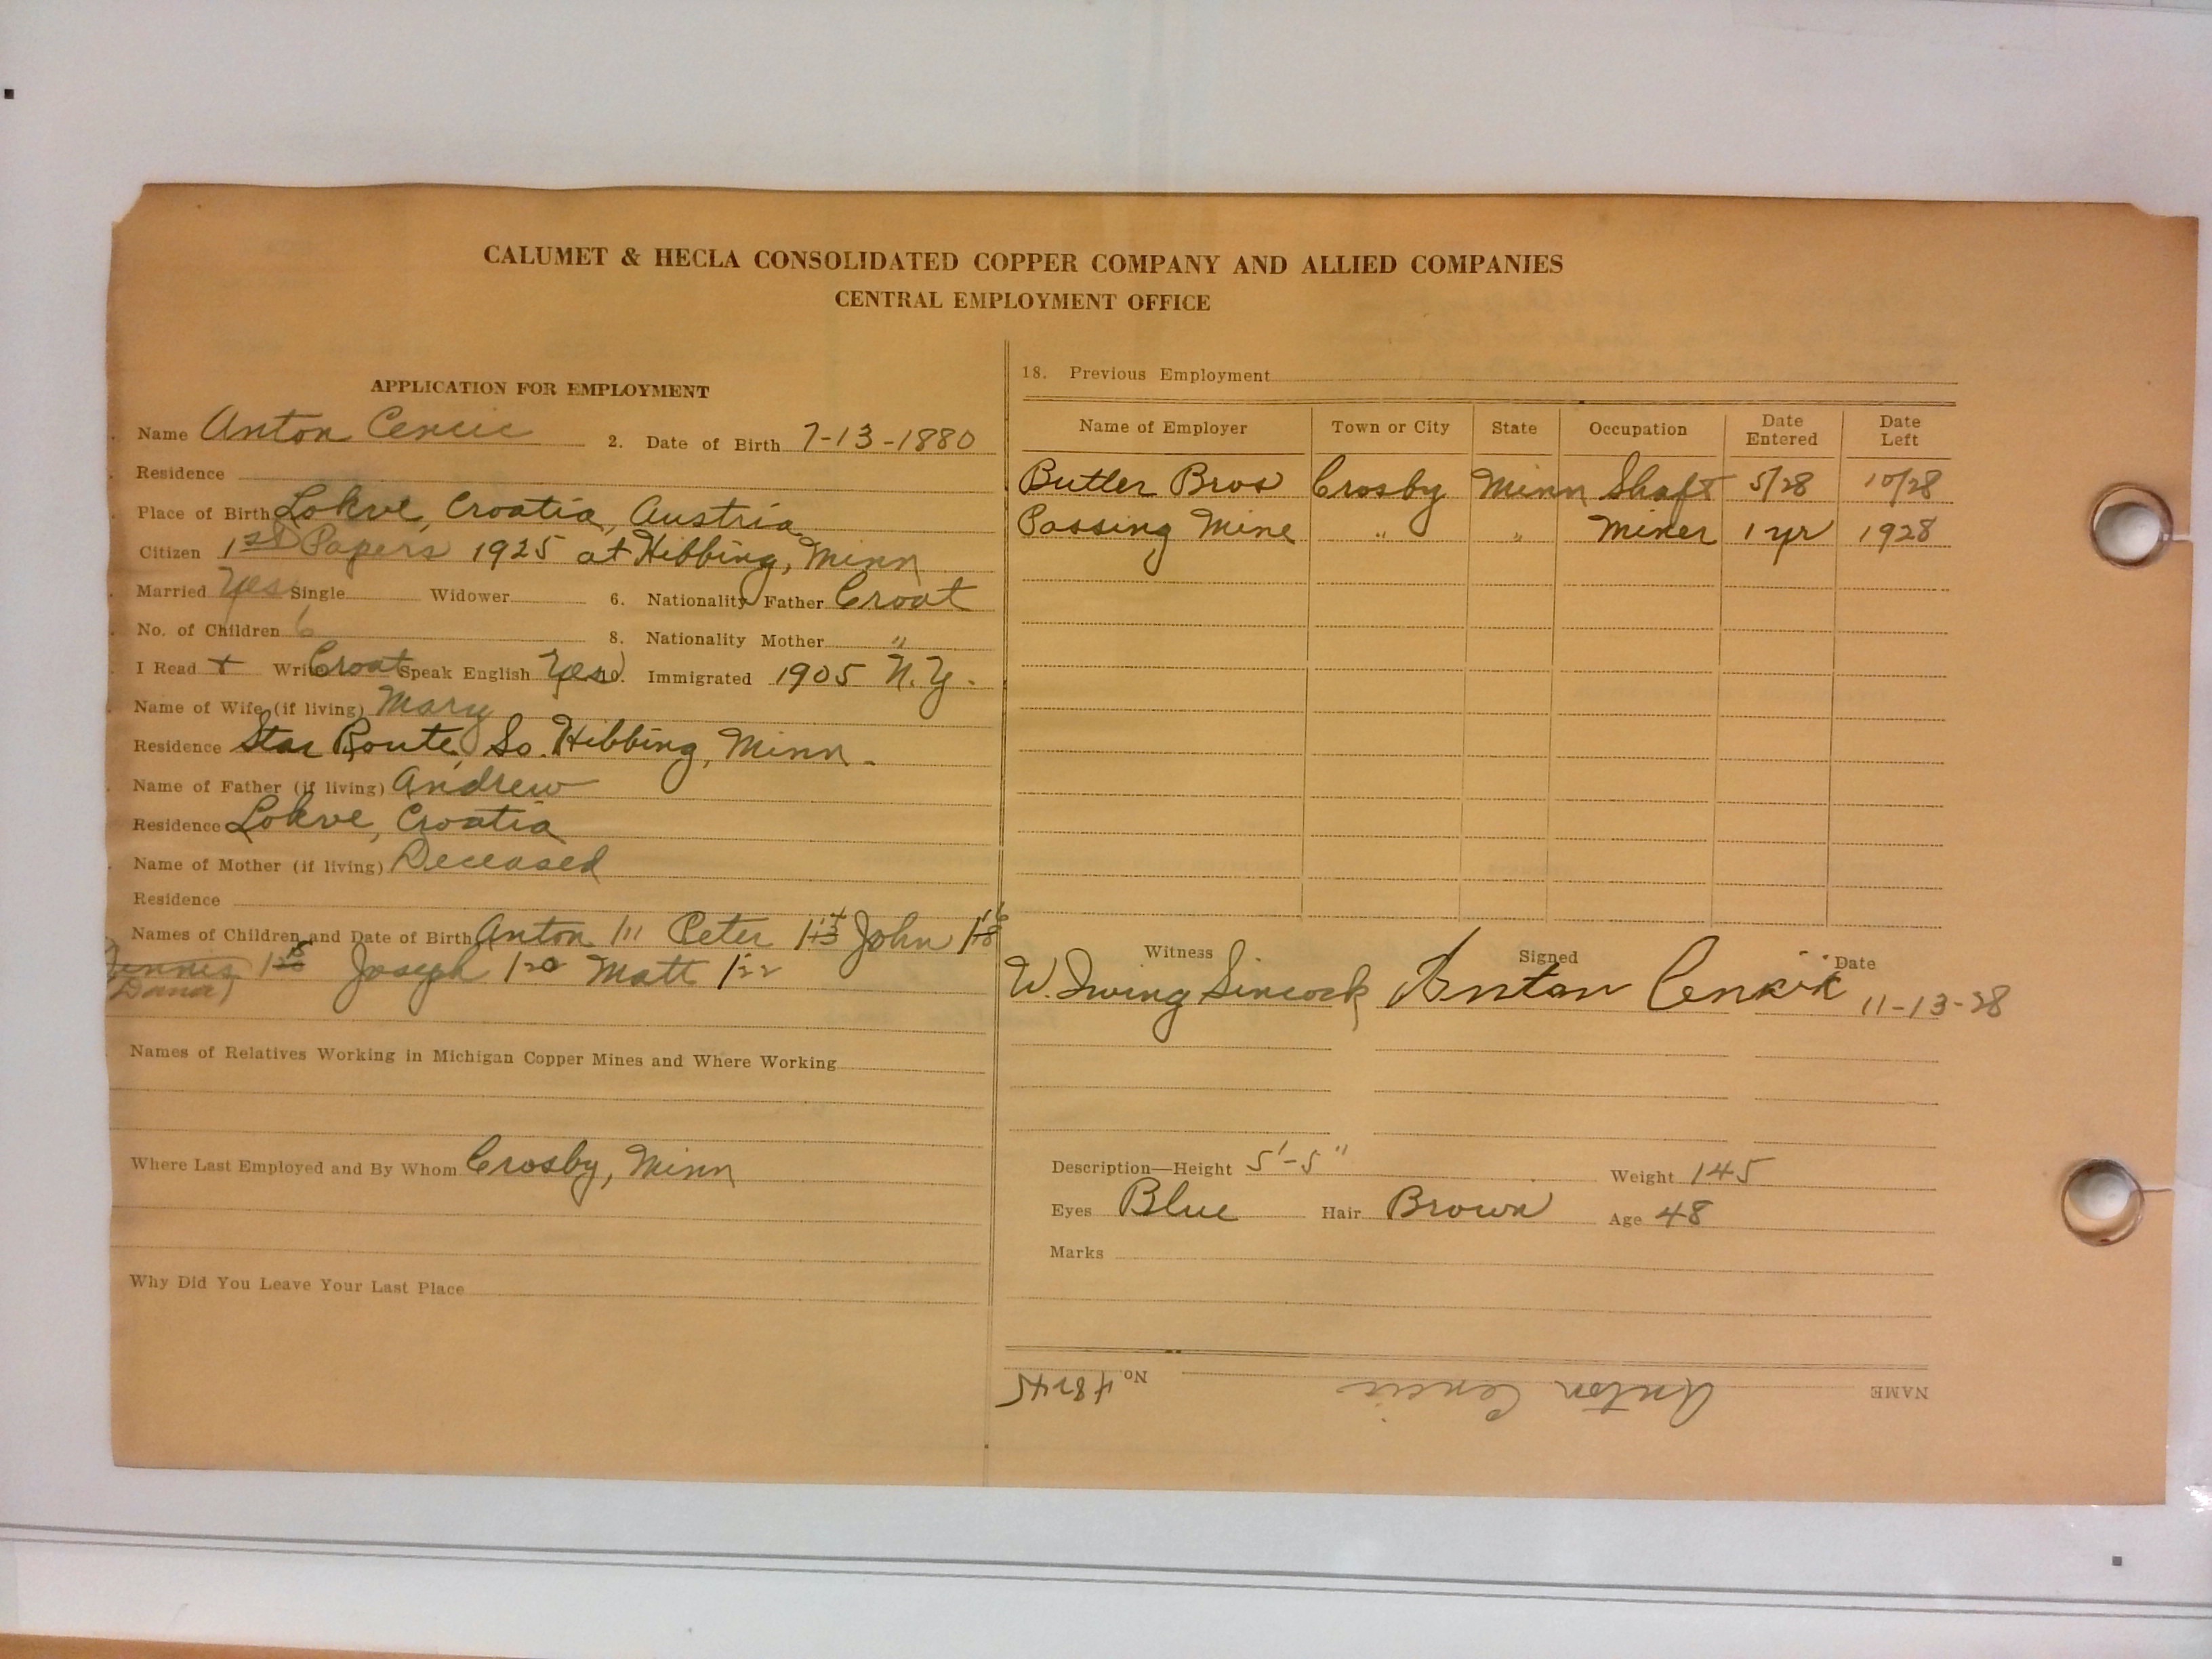 CALUMET & HECLA CONSOLIDATED COPPER COMPANY AND ALLIED COMPANIES
CENTRAL EMPLOYMENT OFFICE
APPLICATION FOR EMPLOYMENT
Name Anton Cencic 2. Date of Birth 7-13-1880
Residence
Place of Birth Lokve, Croatia, Austria
Citizen 1st Papers 1925 at Hibbing, Minn
Married Yes Single Widower 6. Nationality Father Croat
No. of Children 6 8. Nationality Mother "
I Read + Write Croat Speak English Yes 10. Immigrated 1905 N.Y.
Name of Wife (if living) Mary
Residence Star Route, So. Hibbing, Minn.
Name of Father (if living) Andrew
Residence Lokve, Croatia
Name of Mother (if living) Deceased
Residence
Names of Children and Date of Birth Anton 1/11 Peter John
Joseph 1/20 Matt 1/22
Names of Relatives Working in Michigan Copper Mines and Where Working
Where Last Employed and By Whom Crosby, Minn
Why Did You Leave Your Last Place
18. Previous Employment
Name of Employer Town or City State Occupation Date Entered Date Left
Butler Bros Crosby Minn Shaft 5/28 10/28
Passing Mine " " Miner 1 yr 1928
Witness Signed Date
W. Irwing Sincock Anton Cencic 11-13-28
Description—Height 5'-5" Weight 145
Eyes Blue Hair Brown Age 48
Marks
NAME Anton Cencic No. 48245